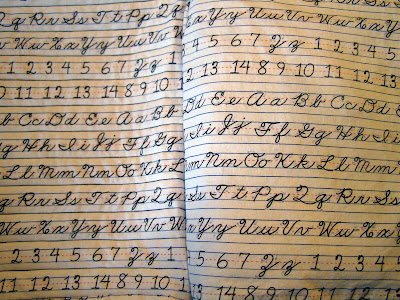 Qq Rr Ss Tt Pp Qq
Ww Xx Yy Uu Vv Ww
1 2 3 4 5 6 7 Zz 1
11 12 13 14 8 9 10
Bb Cc Dd Ee Aa
Gg Hh Ii Jj Ff Gg
Ll Mm Nn Oo Kk L
Qq Rr Ss Tt Pp Qq
Ww Xx Yy Uu Vv
1 2 3 4 5 6 7 Zz 1
11 12 13 14 8 9 10
Rr Ss Tt Pp Qq Rr Ss
Xx Yy Uu Vv Ww Xx
4 5 6 7 Zz 1 2 3 4 5
12 13 14 8 9 10 11 12 13
Dd Ee Aa Bb Cc Dd
Ii Jj Ff Gg Hh Ii
Mm Nn Oo Kk Ll Mm
Rr Ss Tt Pp Qq Rr
Xx Yy Uu Vv Ww Xx
5 6 7 Zz 1 2 3 4 5
13 14 8 9 10 11